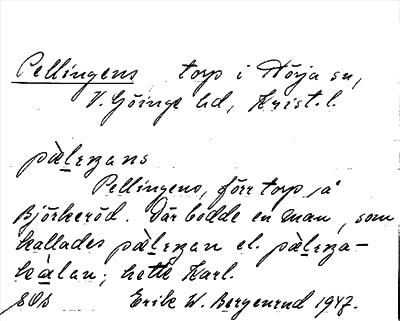 Pellingens torp i Hörja sn,
V. Göinge hd, Krist. l.
pælıŋans
Pellingens, förr torp på
Björkeröd. Där bodde en man, som
kallades pælıŋan el. pælıŋa-
kalan; hette Karl.
Erik W. Bergenrud 1947.